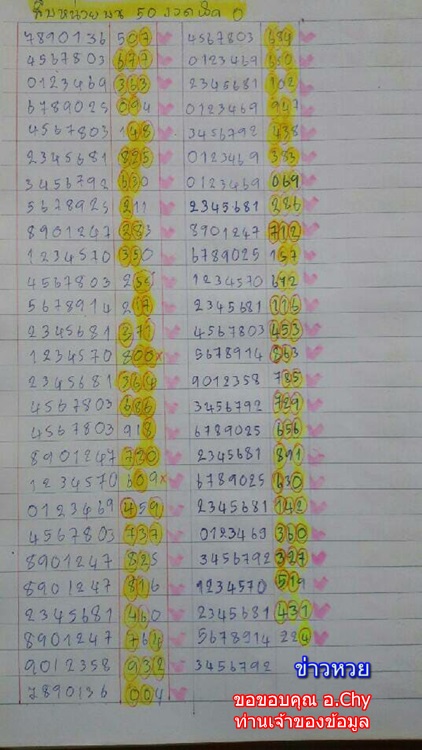 สิบหน่วยบน 50 งวดผิด 0
7890136 507
4567803 677
0123469 363
6789025 094
4567803 148
2345681 825
3456792 630
5678925 211
8901247 283
1234570 350
4567803 255
5678914 217
2345681 371
1234570 800x
2345681 364
4567803 686
4567803 918
8901247 720
1234570 609x
0123469 459
4567803 737
8901247 825
8901247 816
2345681 460
8901247 764
9012358 932
7890136 004
4567803 684
0123469 650
2345681 102
0123469 947
3456792 438
0123469 383
0123469 069
2345681 286
8901247 712
6789025 157
1234570 672
2345681 116
4567803 453
5678914 863
9012358 785
3456792 729
6789025 656
2345681 891
6789025 630
2345681 142
0123469 360
3456792 327
1234570 519
2345681 431
5678914 224
3456792
ข่าวหวย
ขอขอบคุณ อ.Chy
ท่านเจ้าของข้อมูล